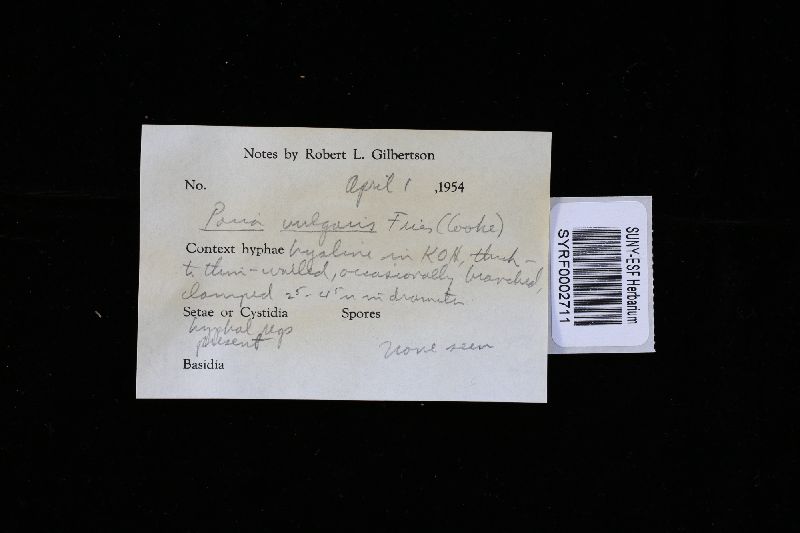 Notes by Robert L. Gilbertson
No. April 1 ,1954
Poria vulgaris Fries (Cooke)
Context hyphae hyaline in KOH, thick-
to thin-walled, occasionally branched,
clamped 2⁵-4⁵ u in diameter
Setae or Cystidia Spores
hyphal pegs
present
none seen
Basidia
SUNY-ESF Herbarium
SYRF0002711